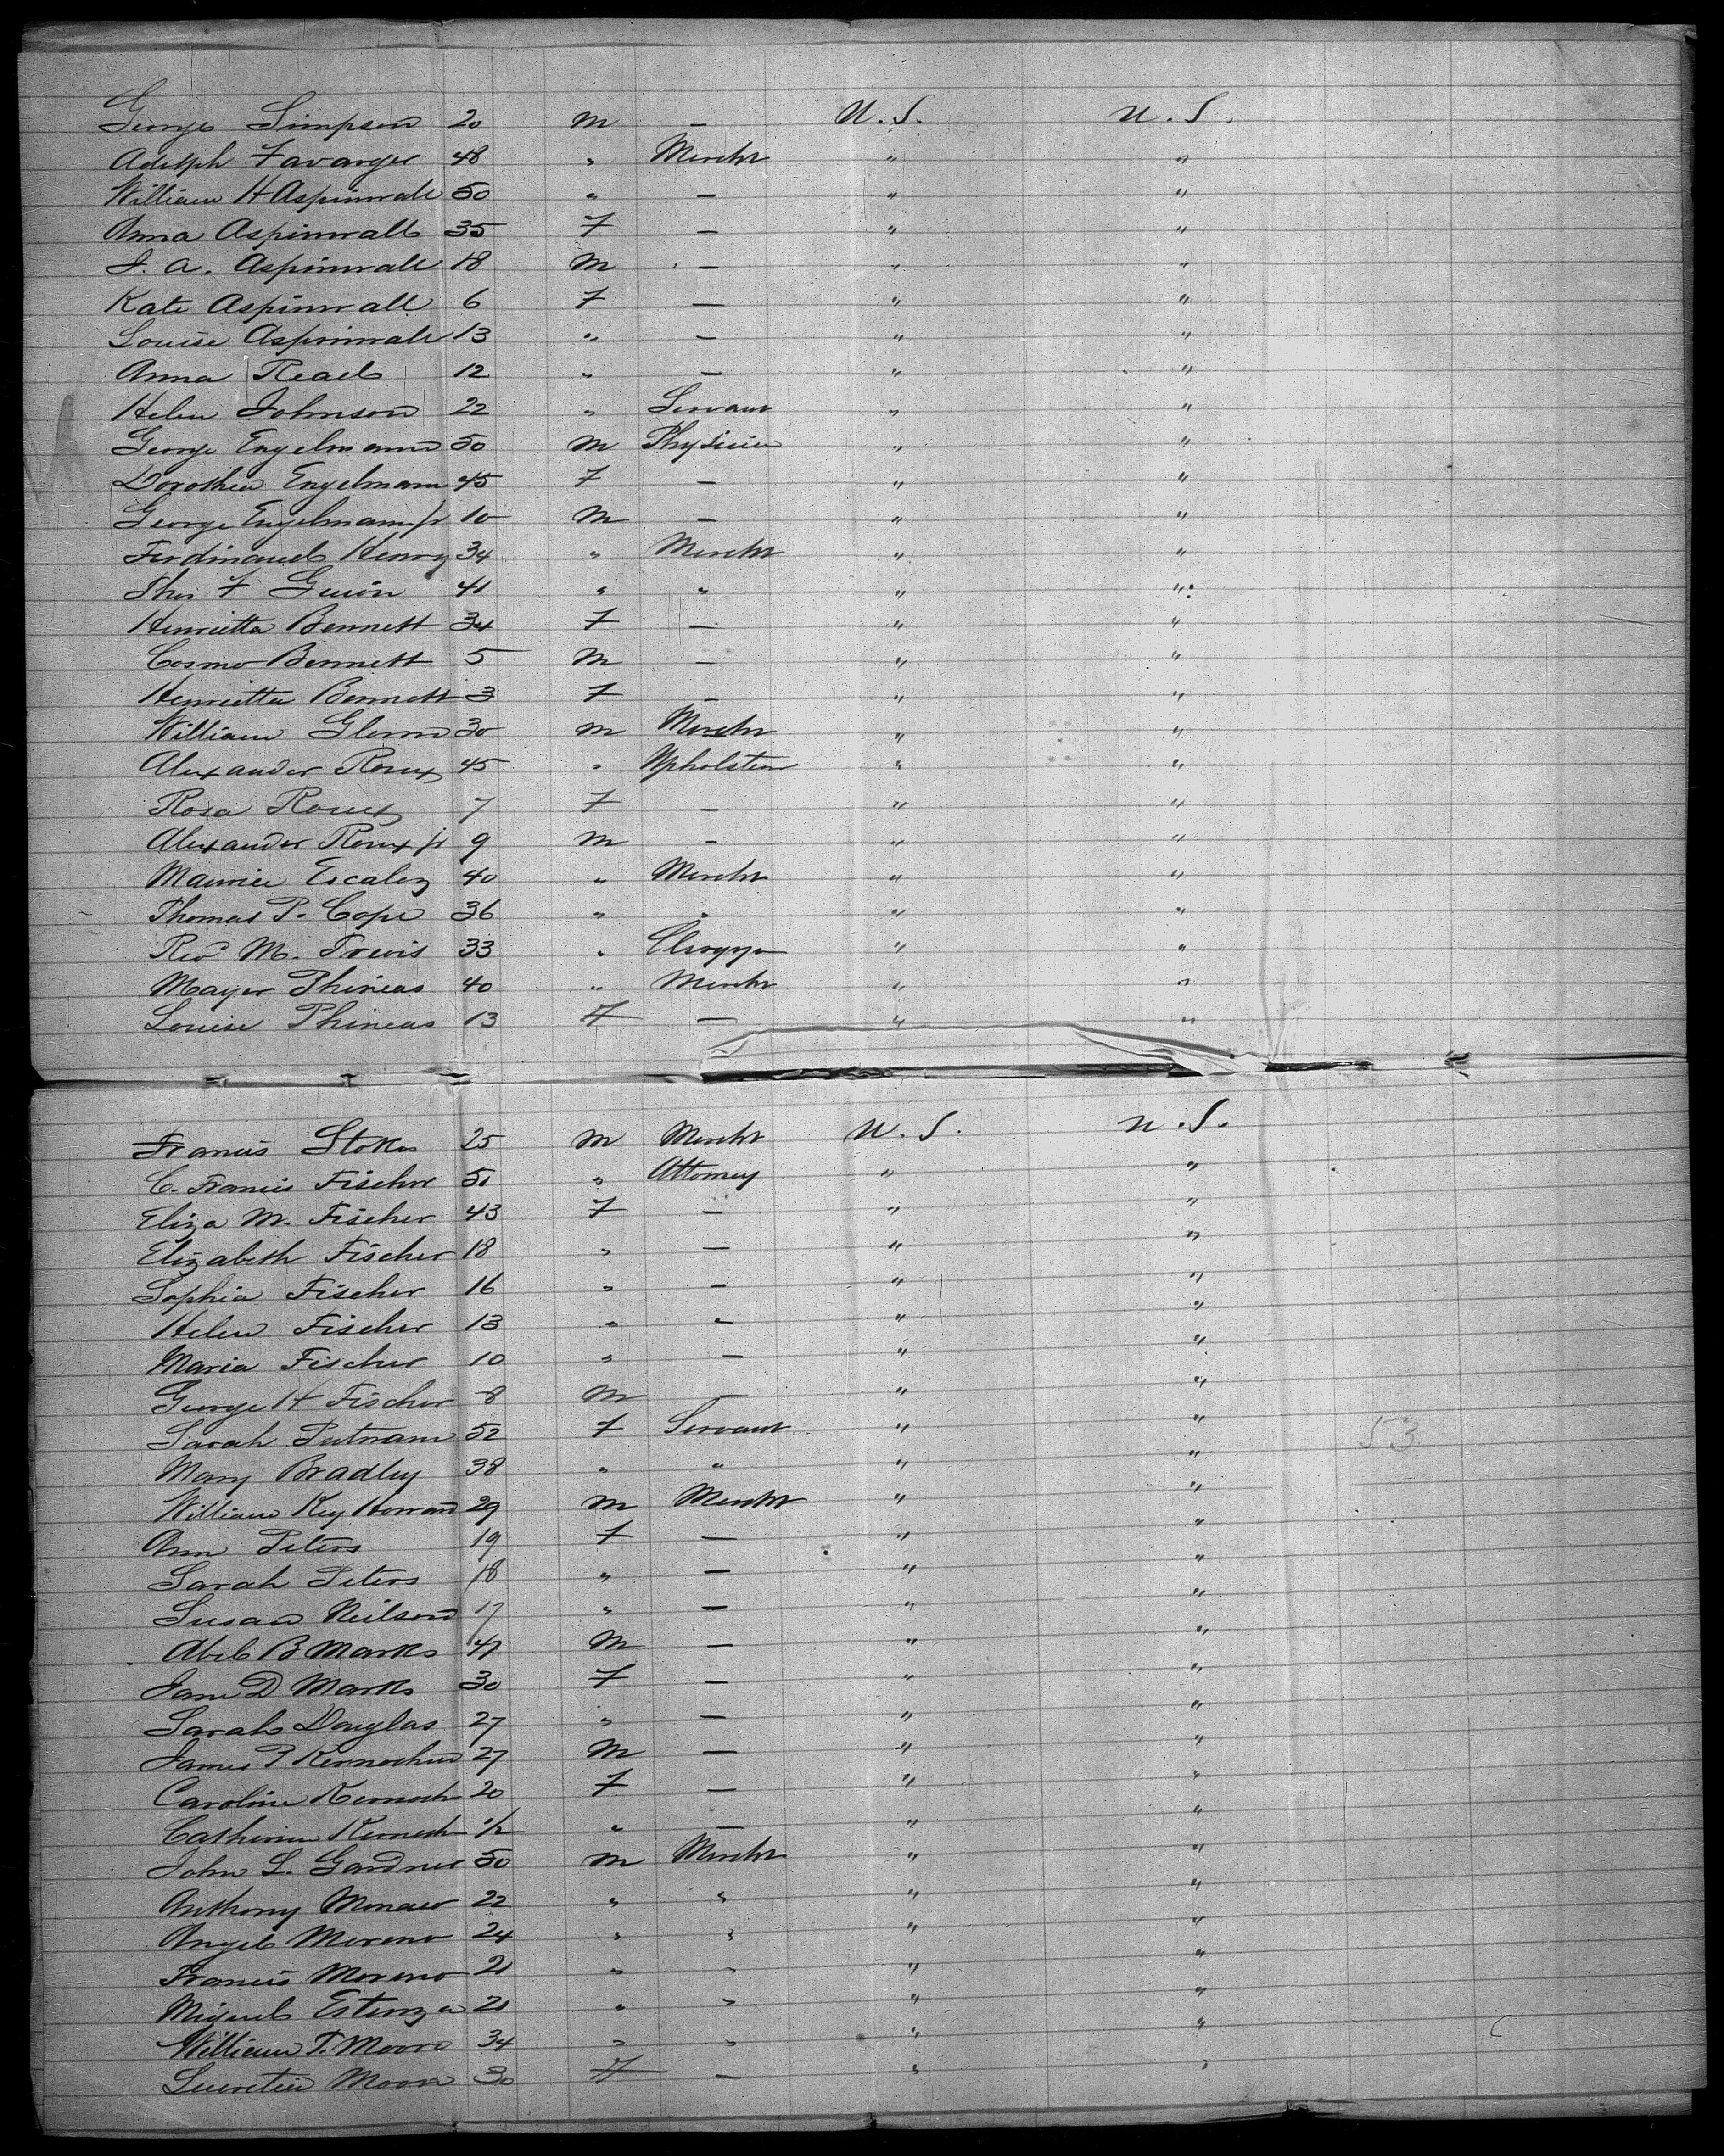 George Simpson 20 m — U.S. U.S.
Adolph Favarger 48 " Mercht " "
William H Aspinwall 50 " — " "
Anna Aspinwall 35 F — " "
J. A. Aspinwall 18 m — " "
Kate Aspinwall 6 F — " "
Louise Aspinwall 13 " — " "
Anna Read 12 " — " "
Helen Johnson 22 " Servant " "
George Engelmann 50 m Physician " "
Dorothea Engelmann 45 F — " "
George Engelmann jr 10 m — " "
Ferdinand Henry 34 " Mercht " "
Thos F Guion 41 " " " "
Henrietta Bennett 34 F — " "
Cosmo Bennett 5 m — " "
Henrietta Bennett 3 F — " "
William Glenn 30 m Mercht " "
Alexander Roux 45 " Upholsterer " "
Rosa Roux 7 F — " "
Alexander Roux jr 9 m — " "
Maurice Escalez 40 " Mercht " "
Thomas P. Cope 36 " " " "
Revd M. Trevis 33 " Clergyn " "
Mayer Phineas 40 " Mercht " "
Louise Phineas 13 F — " "
Francis Stokes 25 m Mercht U.S. U.S.
C. Francis Fischer 50 " Attorney " "
Eliza M. Fischer 43 F — " "
Elizabeth Fischer 18 " — " "
Sophia Fischer 16 " — " "
Helen Fischer 13 " — " "
Maria Fischer 10 " — " "
George H Fischer 8 m — " "
Sarah Putnam 52 F Servant " "
53
Mary Bradley 38 " " " "
William Key Howard 29 m Mercht " "
Ann Peters 19 F — " "
Sarah Peters 18 " — " "
Susan Neilson 17 " — " "
Abel B Marks 47 m — " "
Jane D Marks 30 F — " "
Sarah Douglas 27 " — " "
James P Kernochan 27 m — " "
Caroline Kernoch 20 F — " "
Catherine Kernoch 1/2 " — " "
John L. Gardner 50 m Mercht " "
Anthony 22 " " " "
Angel Moreno 24 " " " "
Francis Moreno 21 " " " "
Miguel Estenza 21 " " " "
William T. Moore 34 " " " "
Lucretia Moore 30 F — " "